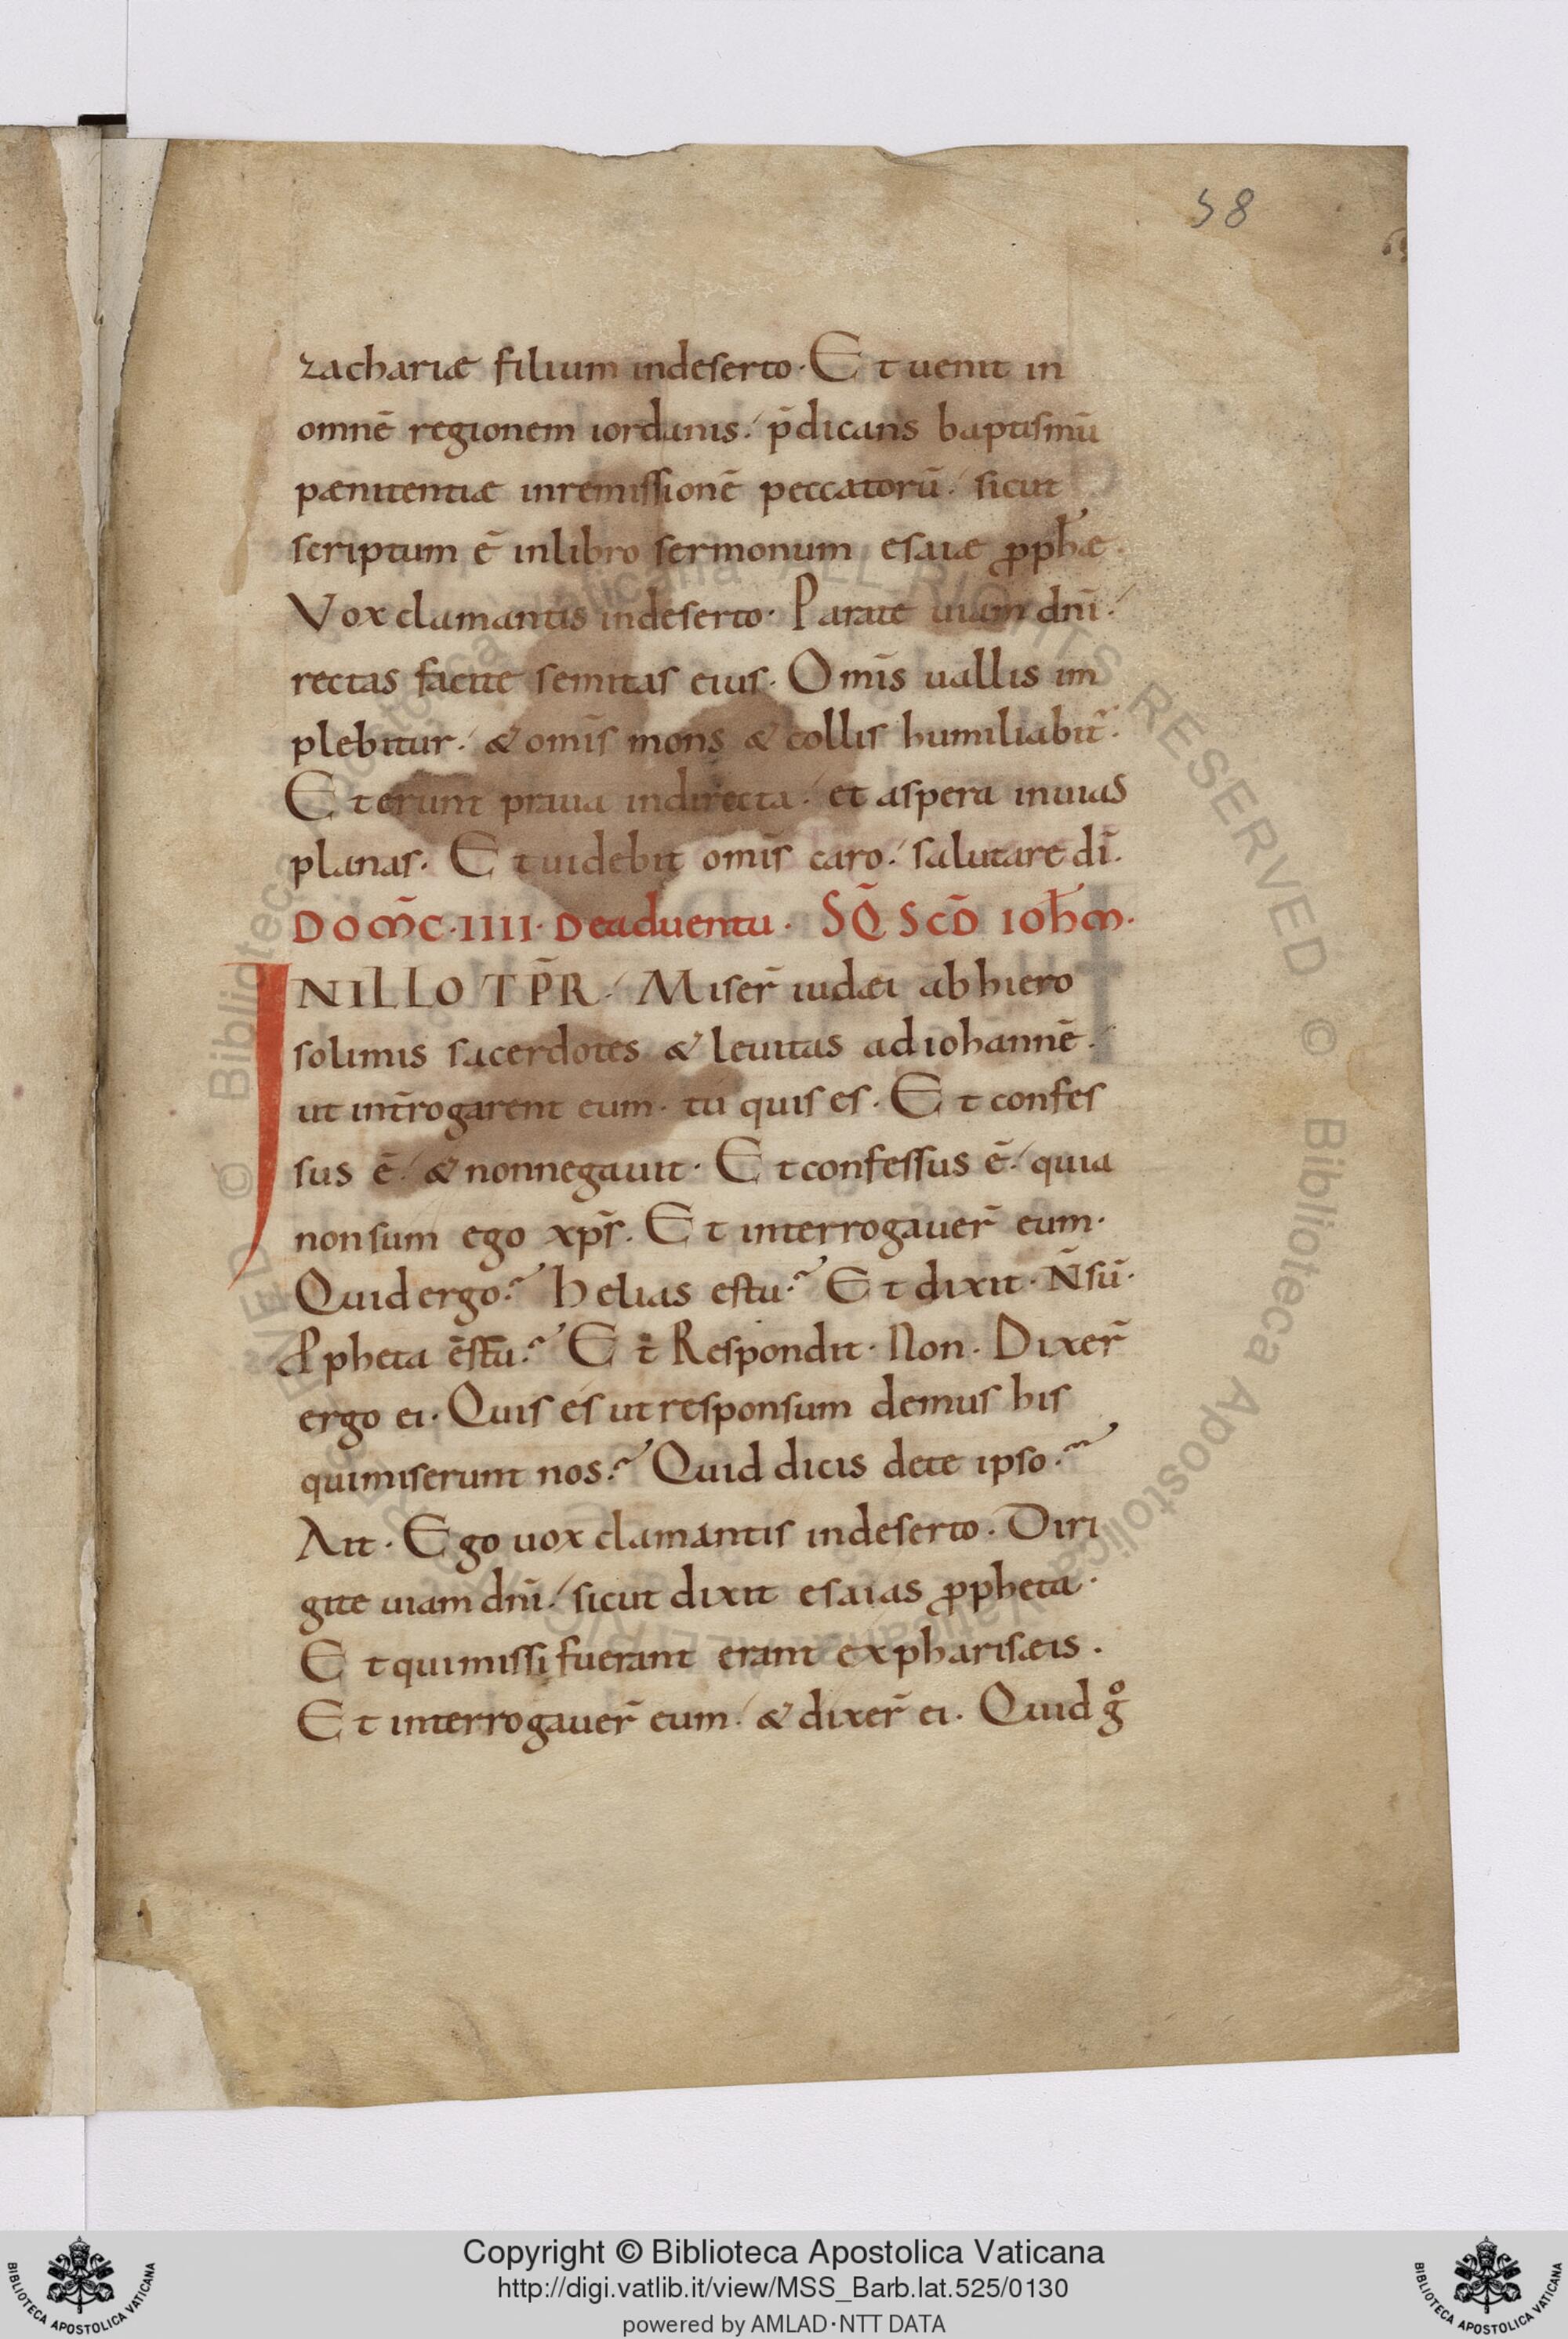 58
zachariæ filium indeserto· Et uenit in
omnē regionem iordanis ·⁄ p̄dicans baptismū
pænitentiæ inremissionē peccatorū ·⁄ sicut
scriptum ē inlibro sermonum esaiæ ꝓph̄æ·
Vox clamantis indeserto· Parate uiam dn̄i ·⁄
rectas facite semitas eius· Om̄is uallis im
plebitur ·⁄ & om̄is mons & collis humiliabit᷑·
Et erunt praua indirecta ·⁄ et aspera inuias
planas· Et uidebit om̄is caro ·⁄ salutare dī·
DOM̄C·IIII· Deaduentu· SQ̄ SCD̄ IOħM·
INILLO TP̄R ·⁄ Miser̄ iudæi ab hiero
solimis sacerdotes & leuitas ad iohannē ·⁄
ut int̄rogarent eum· tu quis es· Et confes
sus ē ·⁄ & nonnegauit· Et confessus ē ·⁄ quia
non sum ego xp̄s· Et interrogauer̄ eum·
Quid ergo? helias estu? Et dixit· N̄ sū·
Ꝓpheta ēs tu? Et Respondit· Non· Dixer̄
ergo ei· Quis es ut responsum demus his
quimiserunt nos? Quid dicis dete ipso?
Ait· Ego uox clamantis indeserto· Diri
gite uiam dn̄i ·⁄ sicut dixit esaias ꝓpheta·
Et quimissi fuerant erant ex pharisæis·
Et interrogauer̄ eum ·⁄ & dixer̄ ei· Quid gͦ
© Biblioteca Apostolica Vaticana ALL RIGHTS RESERVED © Biblioteca Apostolica Vaticana ALL RIGHTS RESERVED
BIBLIOTECA APOSTOLICA VATICANA
Copyright © Biblioteca Apostolica Vaticana
http://digi.vatlib.it/view/MSS_Barb.lat.525/0130
powered by AMLAD·NTT DATA
BIBLIOTECA APOSTOLICA VATICANA